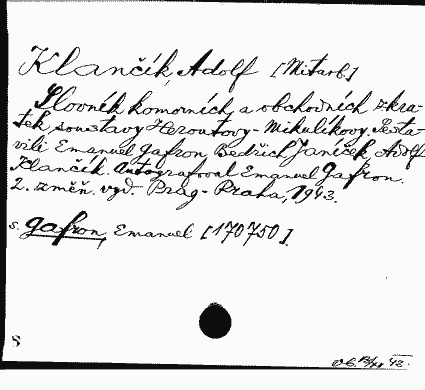 Klančík, Adolf [Mitarb.]
Slovník komorních a obchodních zkra-
tek soustavy Heroutovy-Mikulíkovy. Sesta-
vili Emanuel Gafron, Bedřich Janíček, Adolf
Klančík. Autografoval Emanuel Gafron.
2. změň. vyd. Prag-Praha, 1943.
s. Gafron, Emanuel [170750].
43.